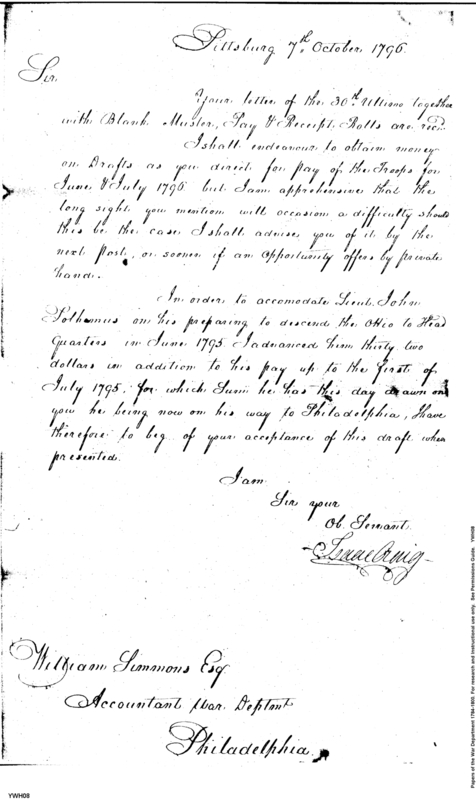 Pittsburg 7th October 1796
Sir
Your letter of the 30th Ultimo together
with Blank Muster, Pay & Receipt Rolls are recd.
I shall endeavour to obtain money
on Drafts as you direct for pay of the Troops for
June & July 1796 but I am apprehensive that the
long sight you mention will occasion a difficulty should
this be the case I shall advise you of it by the
next Post, or sooner if an Opportunity offers by private
hand.
In order to accomodate Lieut. John
Polhemus on his preparing to descend the Ohio to Head
Quarters in June 1795. I advanced him thirty two
dollars in addition to his pay up to the first of
July 1795. for which Sum he has this day drawn on
you he being now on his way to Philadelphia, I have
therefore to beg of your acceptance of this draft when
presented.
I am
Sir your
Ob. Servant
Isaac Craig
William Simmons Esq
Accountant War. Deptmt
Philadelphia
YWH08
Papers of the War Department 1784-1800. For research and instructional use only. See Permissions Guide. YWH08